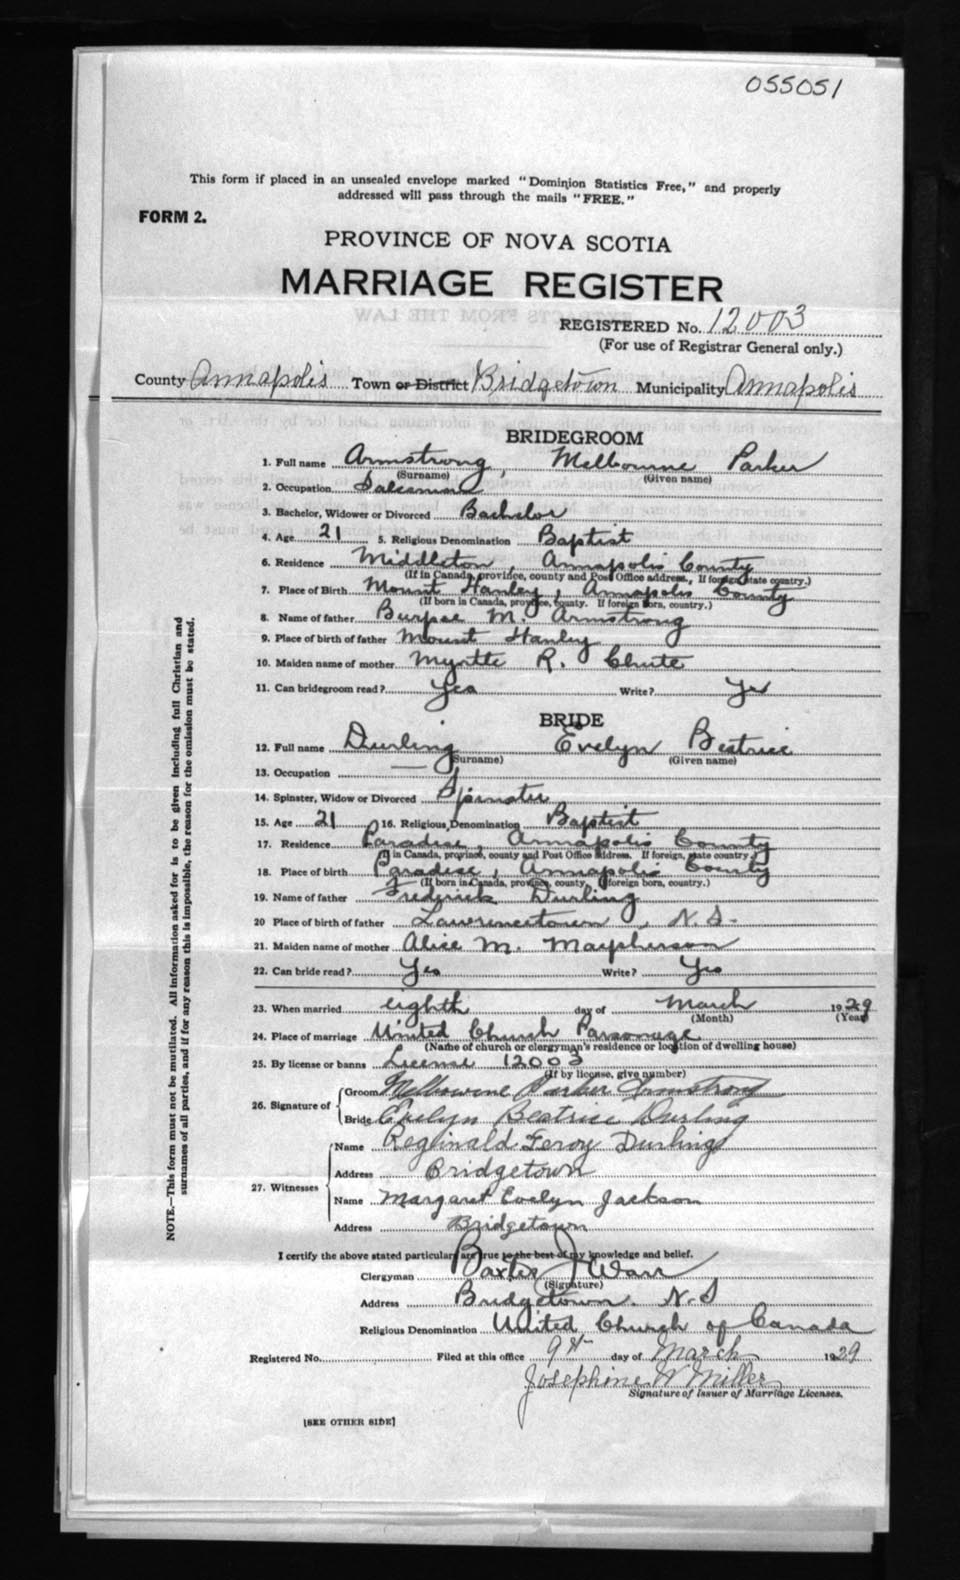 055051
This form if placed in an unsealed envelope marked "Dominion Statistics Free," and properly
addressed will pass through the mails "FREE."
FORM 2.
PROVINCE OF NOVA SCOTIA
MARRIAGE REGISTER
REGISTERED No. 12003
(For use of Registrar General only.)
County Annapolis Town or District Bridgetown Municipality Annapolis
BRIDEGROOM
1. Full name Armstrong, Melbourne Parker
(Surname) (Given name)
2. Occupation Salesman
3. Bachelor, Widower or Divorced Bachelor
4. Age 21 5. Religious Denomination Baptist
6. Residence Middleton, Annapolis County
(If in Canada, province, county and Post Office address., If foreign, state country.)
7. Place of Birth Mount Hanley, Annapolis County
(If born in Canada, province, county. If foreign born, country.)
8. Name of father Burpee M. Armstrong
9. Place of birth of father Mount Hanley
10. Maiden name of mother Myrtle R. Chute
11. Can bridegroom read? Yes Write? Yes
BRIDE
12. Full name Durling Evelyn Beatrice
(Surname) (Given name)
13. Occupation —
14. Spinster, Widow or Divorced Spinster
15. Age 21 16. Religious Denomination Baptist
17. Residence Paradise, Annapolis County
(If in Canada, province, county and Post Office address. If foreign, state country.)
18. Place of birth Paradise, Annapolis County
(If born in Canada, province, county, If foreign born, country.)
19. Name of father Frederick Durling
20 Place of birth of father Lawrencetown, N.S.
21. Maiden name of mother Alice M.
22. Can bride read? Yes Write? Yes
23. When married eighth day of March 1929
(Month) (Year)
24. Place of marriage United Church Parsonage
(Name of church or clergyman's residence or location of dwelling house)
25. By license or banns License 12003
(If by license, give number)
26. Signature of Groom Melbourne Parker Armstrong
Bride Evelyn Beatrice Durling
27. Witnesses Name Reginald Durling
Address Bridgetown
Name Margaret Evelyn Jackson
Address Bridgetown
I certify the above stated particulars are true to the best of my knowledge and belief.
Clergyman Baxter J Warr
(Signature)
Address Bridgetown. N.S
Religious Denomination United Church of Canada
Registered No. Filed at this office 9th day of March 1929
Josephine W Miller
Signature of Issuer of Marriage Licenses.
[SEE OTHER SIDE]
NOTE.—This form must not be mutilated. All information asked for is to be given including full Christian and
surnames of all parties, and if for any reason this is impossible, the reason for the omission must be stated.